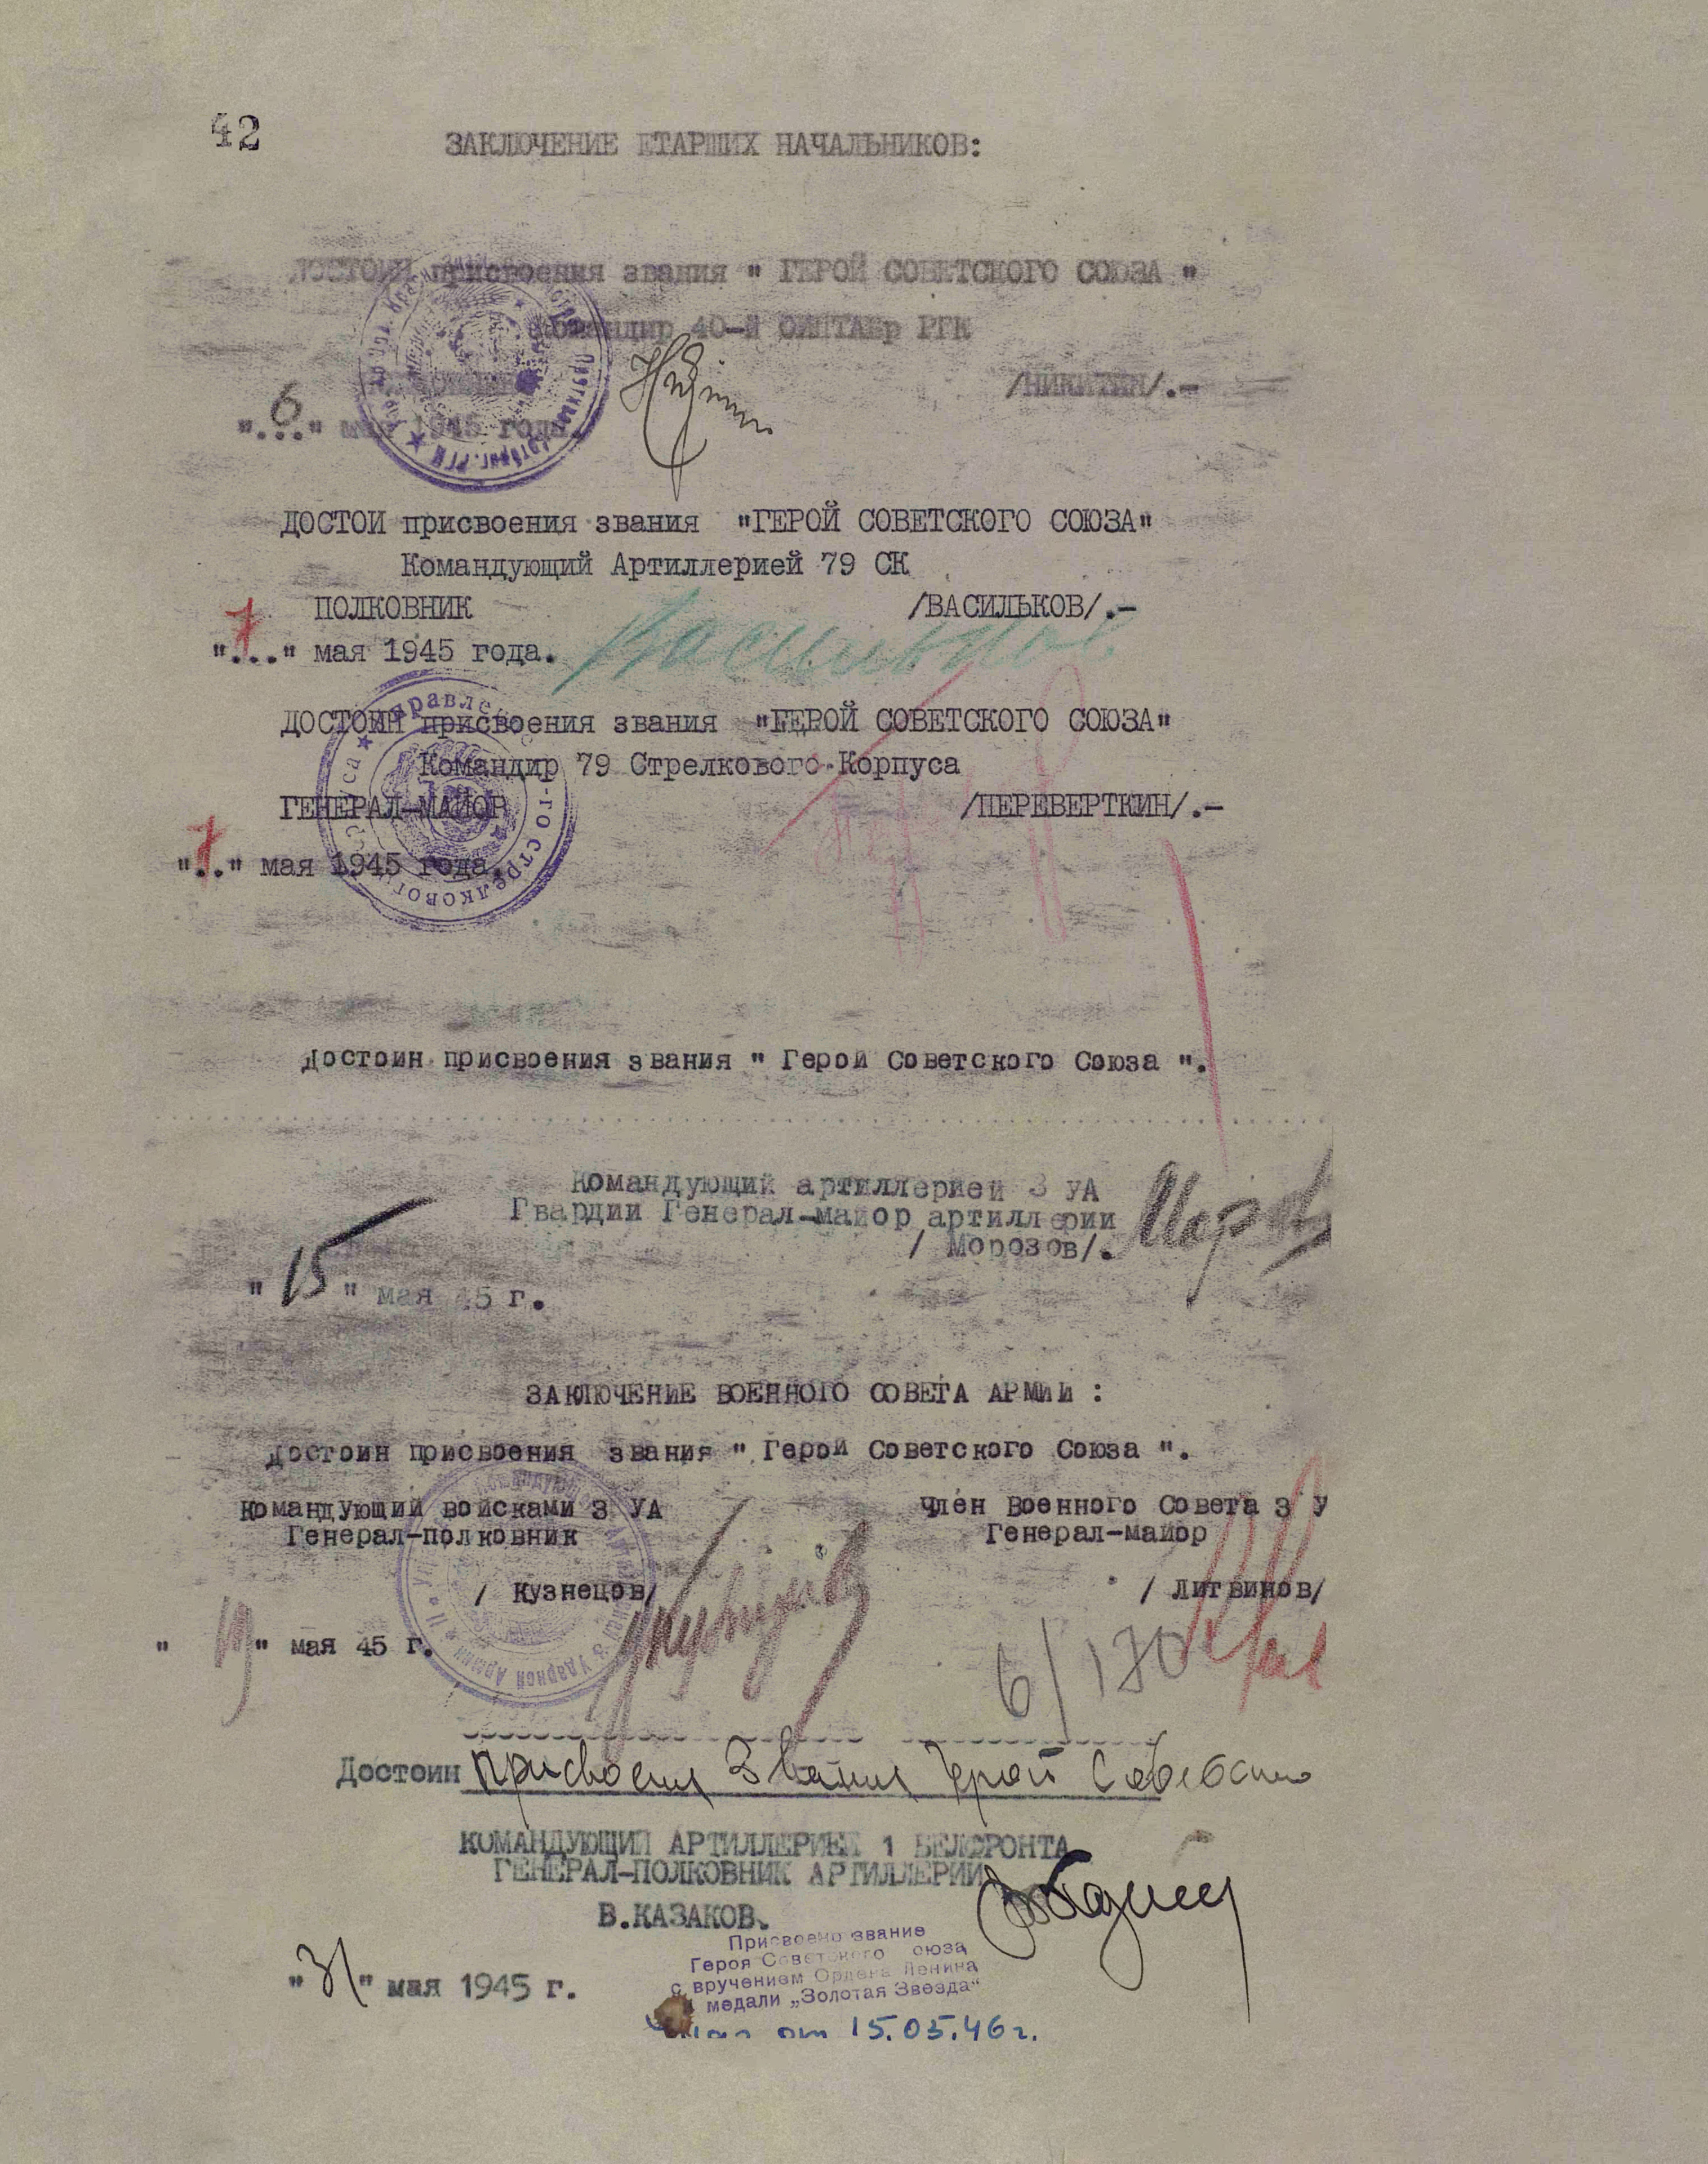 42
ЗАКЛЮЧЕНИЕ ЕТАРШИХ НАЧАЛЬНИКОВ:
ДОСТОИН присвоения звания " ГЕРОЙ СОВЕТСКОГО СОЮЗА "
Командир 40-й ОИПТАБр РГК
/НИКИТИН/.-
"6..." мая 1945 года.
ДОСТОИ присвоения звания "ГЕРОЙ СОВЕТСКОГО СОЮЗА"
Командующий Артиллерией 79 СК
ПОЛКОВНИК /ВАСИЛЬКОВ/.-
Васильков
"7..." мая 1945 года.
ДОСТОИН присвоения звания "ГЕРОЙ СОВЕТСКОГО СОЮЗА"
Командир 79 Стрелкового Корпуса
ГЕНЕРАЛ-МАЙОР /ПЕРЕВЕРТКИН/.-
"7.." мая 1945 года.
Достоин присвоения звания " Герой Советского Союза ".
Командующий артиллерией 3 УА
Гвардии Генерал-майор артиллерии
/ Морозов/.
"15" мая 45 г.
ЗАКЛЮЧЕНИЕ ВОЕННОГО СОВЕТА АРМИИ :
Достоин присвоения звания " Герой Советского Союза ".
Командующий войсками 3 УА Член Военного Совета 3 У
Генерал-полковник Генерал-майор
/ Кузнецов/ / Литвинов/
" " мая 45 г.
6/170
Достоин присвоения звания Герой Советского
КОМАНДУЮЩИЙ АРТИЛЛЕРИЕЙ 1 БЕЛФРОНТА
ГЕНЕРАЛ-ПОЛКОВНИК АРТИЛЛЕРИИ
В.КАЗАКОВ.
Присвоено звание
Героя Советского Союза
с вручением Ордена Ленина
и медали „Золотая Звезда"
"31" мая 1945 г.
от 15.05.46 г.